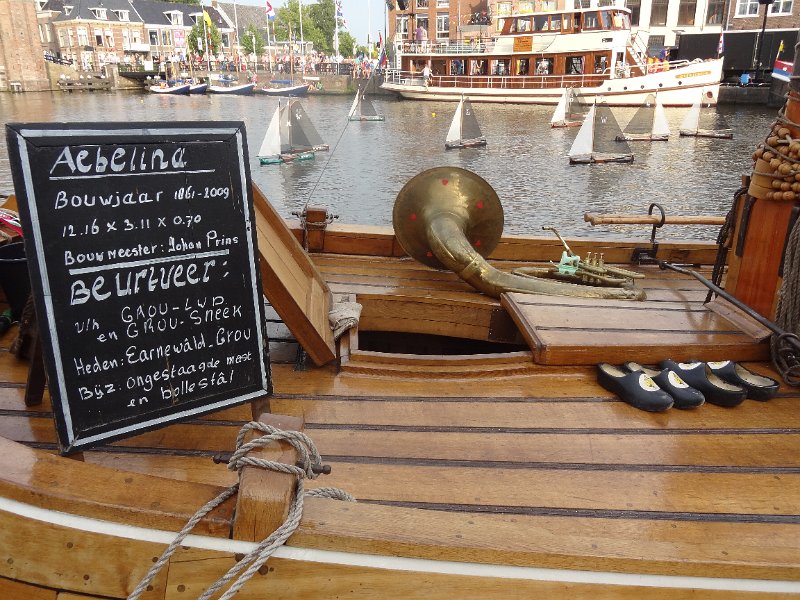 Aebelina
Bouwjaar 1861-2009
12.16 x 3.11 x 0.70
Bouwmeester: Johan Prins
Beurtveer:
v/h GROU-LWD
en GROU-Sneek
Heden: Earnewâld-Grou
Bijz: ongestaagde mast
en bollestâl